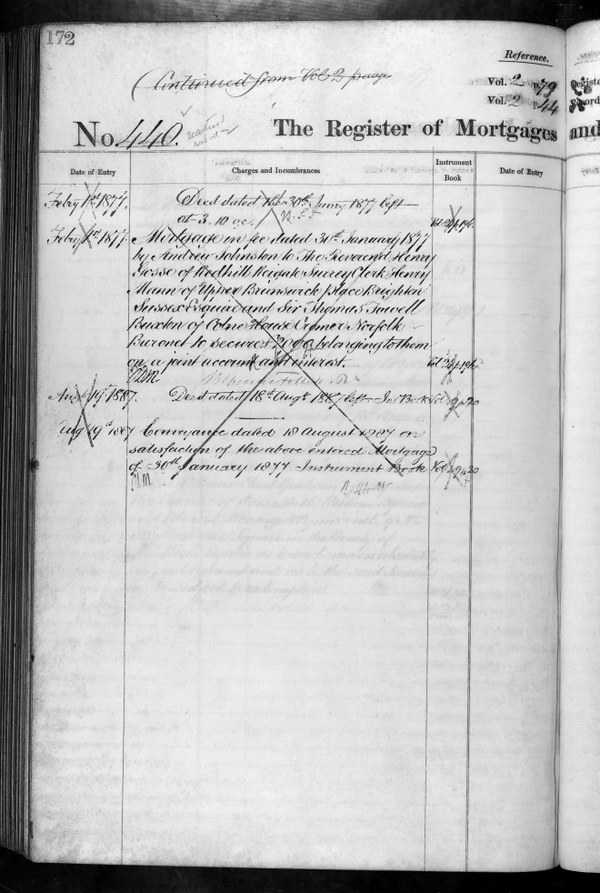 172
Reference.
(Continued from Vol 2 page
Vol. 2 p. 79
Vol. 2 p. 44
No. 440. The Register of Mortgages and
Date of Entry
Charges and Incumbrances
Instrument Book
Date of Entry
Febry 1st 1877. Deed dated 30th Jany 1877 left
at 3.10 oc. Vol 24 p. 196
Febry 1st 1877 Mortgage in fee dated 31st January 1877
by Andrew Johnston to The Reverend Henry
Gosse of Redhill Reigate Surrey Clerk Henry
Munn of Upper Brunswick place Brighton
Sussex Esquire and Sir Thomas Fowell
Buxton of Colne House Cromer Norfolk
Baronet to secure £2000 belonging to them
on a joint account and interest. Vol 24 p. 196
Augst 19th 1887. Deed dated 18th Augt 1887 left Inst Book Vol 29 p 20
Aug 19th 1887 Conveyance dated 18 August 1887 in
satisfaction of the above entered Mortgage
of 30th January 1877 Instrument Book Vol 29 p 20